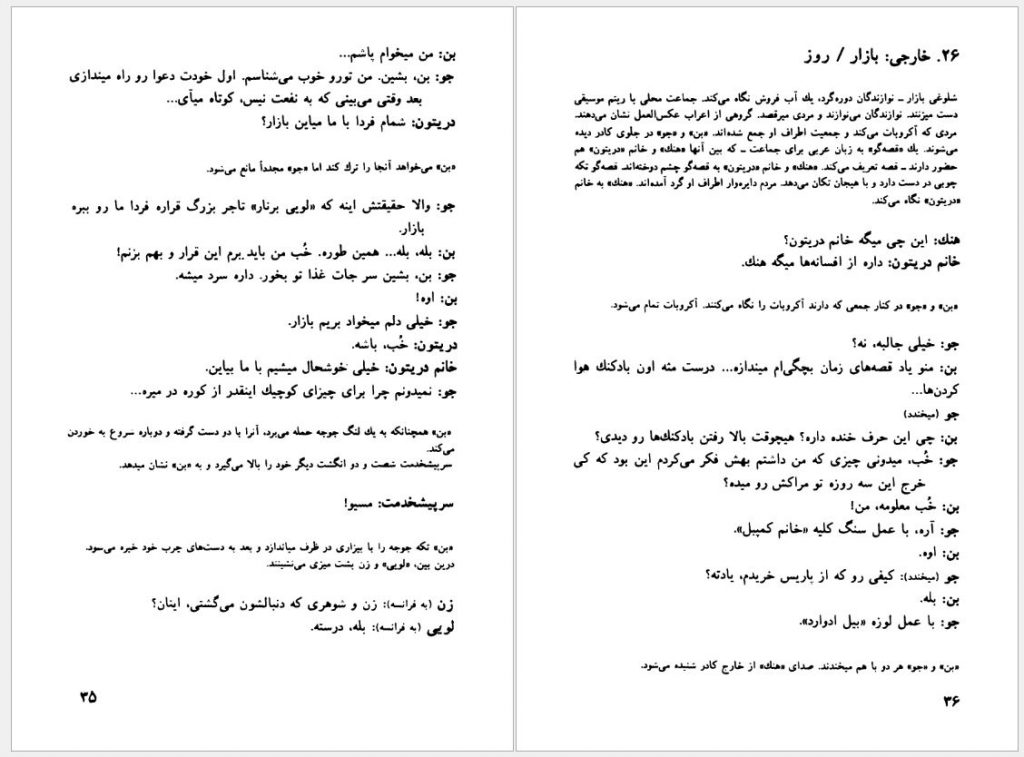 بن: من میخوام پاشم...
جو: بن، بشین. من تورو خوب می‌شناسم. اول خودت دعوا رو راه میندازی
بعد وقتی می‌بینی که به نفعت نیس، کوتاه میآی...
دریتون: شمام فردا با ما میاین بازار؟
«بن» می‌خواهد آنجا را ترك کند اما «جو» مجدداً مانع می‌شود.
جو: والا حقیقتش اینه که «لویی برنار» تاجر بزرگ قراره فردا ما رو ببره
بازار.
بن: بله، بله... همین طوره. خُب من باید برم این قرار و بهم بزنم!
جو: بن، بشین سر جات غذا تو بخور. داره سرد میشه.
بن: اوه!
جو: خیلی دلم میخواد بریم بازار.
دریتون: خُب، باشه.
خانم دریتون: خیلی خوشحال میشیم با ما بیاین.
جو: نمیدونم چرا برای چیزای کوچیك اینقدر از کوره در میره...
«بن» همچنانکه به یك لنگ جوجه حمله می‌برد، آنرا با دو دست گرفته و دوباره شروع به خوردن
می‌کند.
سرپیشخدمت شصت و دو انگشت دیگر خود را بالا می‌گیرد و به «بن» نشان میدهد.
سرپیشخدمت: مسیو!
«بن» تکه جوجه را با بیزاری در ظرف میاندازد و بعد به دست‌های چرب خود خیره می‌شود.
درین بین، «لویی» و زن پشت میزی می‌نشینند.
زن (به فرانسه): زن و شوهری که دنبالشون می‌گشتی، اینان؟
لویی (به فرانسه): بله، درسته.
۳۵
۲۶. خارجی: بازار / روز
شلوغی بازار ــ نوازندگان دوره‌گرد، یك آب فروش نگاه می‌کند. جماعت محلی با ریتم موسیقی
دست میزنند. نوازندگان می‌نوازند و مردی میرقصد. گروهی از اعراب عکس‌العمل نشان می‌دهند.
مردی که آکروبات می‌کند و جمعیت اطراف او جمع شده‌اند. «بن» و «جو» در جلوی کادر دیده
می‌شوند. یك «قصه‌گو» به زبان عربی برای جماعت ــ که بین آنها «هنك» و خانم «دریتون» هم
حضور دارند ــ قصه تعریف می‌کند. «هنك» و خانم «دریتون» به قصه‌گو چشم دوخته‌اند. قصه‌گو تکه
چوبی در دست دارد و با هیجان تکان می‌دهد. مردم دایره‌وار اطراف او گرد آمده‌اند. «هنك» به خانم
«دریتون» نگاه می‌کند.
هنك: این چی میگه خانم دریتون؟
خانم دریتون: داره از افسانه‌ها میگه هنك.
«بن» و «جو» در کنار جمعی که دارند آکروبات را نگاه می‌کنند. آکروبات تمام می‌شود.
جو: خیلی جالبه، نه؟
بن: منو یاد قصه‌های زمان بچگی‌ام میندازه... درست مثه اون بادکنك هوا
کردن‌ها...
جو (میخندد)
بن: چی این حرف خنده داره؟ هیچوقت بالا رفتن بادکنك‌ها رو دیدی؟
جو: خُب، میدونی چیزی که من داشتم بهش فکر می‌کردم این بود که کی
خرج این سه روزه تو مراکش رو میده؟
بن: خُب معلومه، من!
جو: آره، با عمل سنگ کلیه «خانم کمپبل».
بن: اوه.
جو (میخندد): کیفی رو که از پاریس خریدم، یادته؟
بن: بله.
جو: با عمل لوزه «بیل ادوارد».
«بن» و «جو» هر دو با هم میخندند. صدای «هنك» از خارج کادر شنیده می‌شود.
۳۶